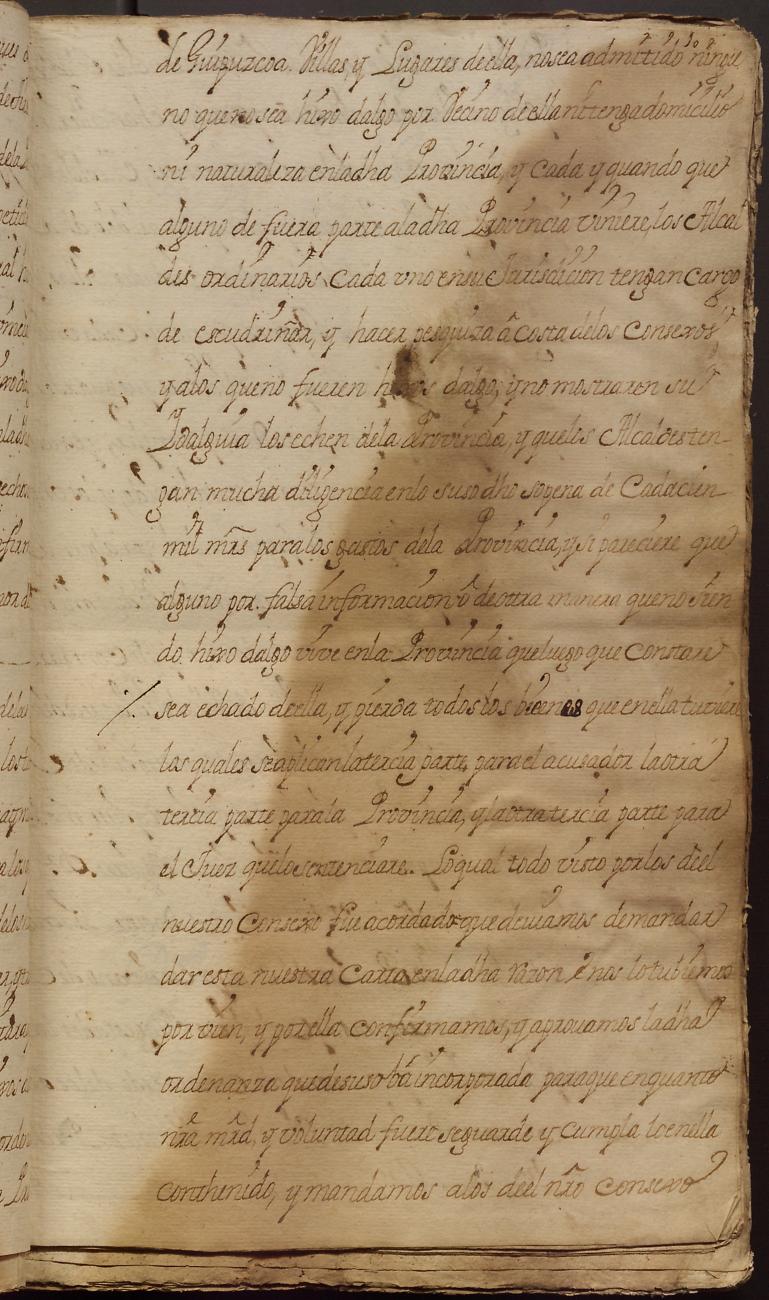 de Guipuzcoa. Villas, y Lugares deella, nosea admitido ningu
no quenosea hixo dalgo por Vecino deella nitengadomicilio
ni naturaleza enladha Provincia, y Cada y quando que
alguno de fuera parte aladha Provincia viniere, los Alcal
des ordinarios Cada vno ensu Jurisdicion tengan cargo
de escudriñar, y hacer pesquiza â costa delos Consexos
yalos queno fueren hixos dalgo, yno mostraren su
Ydalguia losechen dela Provincia, y quelos Alcaldes ten-
gan mucha diligencia enlo susodho sopena de Cadacien
mill mrs paralos gastos dela Provincia, y si pareciere que
alguno por falsa informacion ô deotra manera queno sien
do hixo dalgo vive enla Provincia queluego que Constare
sea echado deella, y pierda todos los bienes que enella tuviere
los quales seaplicanlatercia parte, parael acusador laotra
tercia parte parala Provincia, ylaotra tercia parte para
el Juez quelo sentenciare. Loqual todo visto porlos deel
nuestro Consexo fue acordado que deviamos demandar
dar esta nuestra Carta enladha razon ênos lotubimos
por vien, y porella confirmamos, y aprovamos ladha
ordenanza quedesuso bâ incorporada paraque enquanto
nrâ mrd, y voluntad fuere seguarde y Cumpla loenella
conthenido, y mandamos alos deel nrô consexo